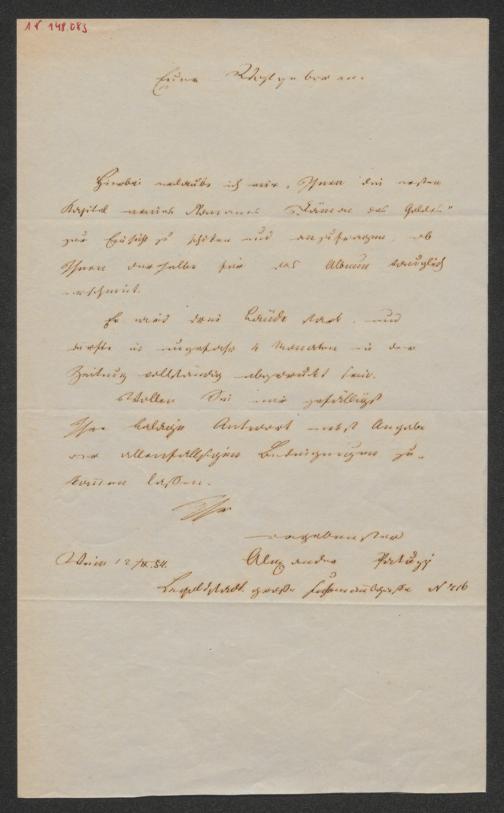 I N 148.083
Euer Wohlgeboren.
Hierbei erlaube ich mir, Ihnen die ersten
Kapitel meines Romanes "Dämon des Goldes"
zur Einsicht zu schicken und anzufragen, ob
Ihnen derselbe für das Album tauglich
erscheint.
Er wird drei Bände stark, und
dürfte in ungefähr 4 Monaten in der
Zeitung vollständig abgedruckt sein.
Wollen Sie mir gefälligst
Ihre baldige Antwort nebst Angabe
der allenfallsigen Bedingungen zu-
kommen lassen.
Ihr
ergebenster
Wien 12/IX. 54. Alexander Patuzzi
Leopoldstadt. große N